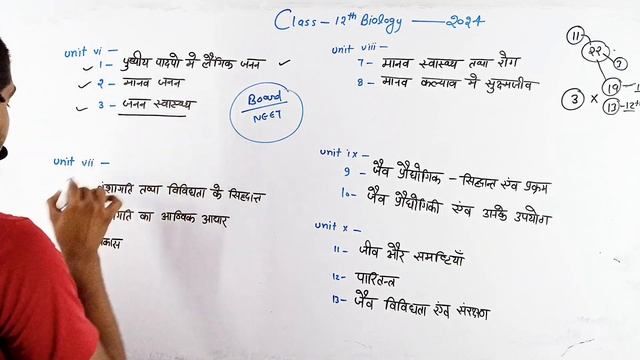 Class-12th Biology — 2024
unit vi -
1- पुष्पीय पादपो मे लैंगिक जनन
2- मानव जनन
3- जनन स्वास्थ्य
Board
NEET
unit vii -
तथा विविधता के सिद्धान्त
का आण्विक आधार
unit viii -
7- मानव स्वास्थ्य तथा रोग
8- मानव कल्याव मे सुक्ष्मजीव
unit ix -
9- जैव प्रौद्योगिक - सिद्धान्त एंव प्रक्रम
10- जैव प्रौद्योगिकी एंव उनके उपयोग
unit x -
11- जीव और समष्टियाँ
12- पारितन्त्र
13- जैव विविधता एंव संरक्षण
11
22
3
19
3 × 13-12th